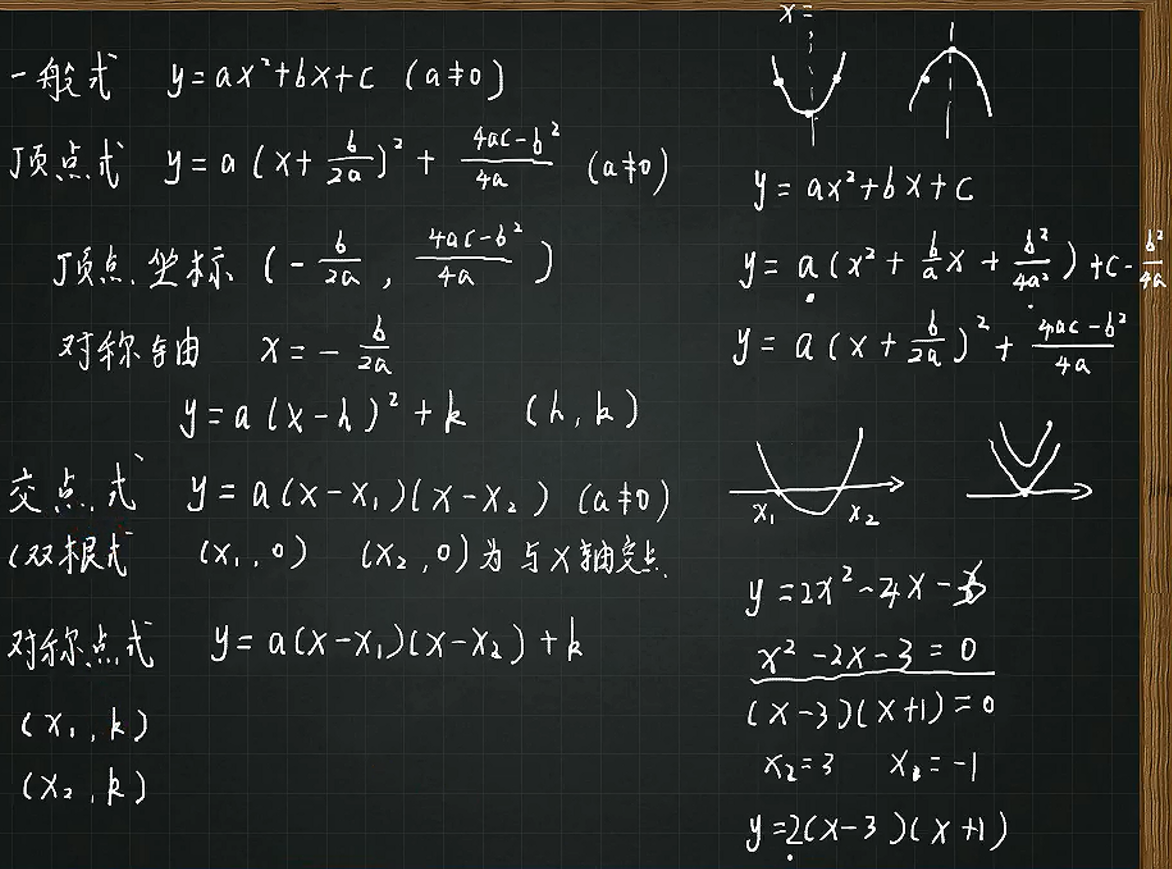 一般式 y=ax²+bx+c (a≠0)
顶点式 y=a(x+b/2a)²+(4ac-b²)/4a (a≠0)
顶点坐标 (-b/2a, (4ac-b²)/4a)
对称轴 x=-b/2a
y=a(x-h)²+k (h,k)
交点式 y=a(x-x₁)(x-x₂) (a≠0)
(双根式 (x₁,0) (x₂,0)为与X轴交点
对称点式 y=a(x-x₁)(x-x₂)+k
(x₁,k)
(x₂,k)
x=
y=ax²+bx+c
y=a(x²+b/a x+b²/4a²)+c-b²/4a
y=a(x+b/2a)²+(4ac-b²)/4a
x₁ x₂
y=2x²-4x-
x²-2x-3=0
(x-3)(x+1)=0
x₂=3 =-1
y=2(x-3)(x+1)